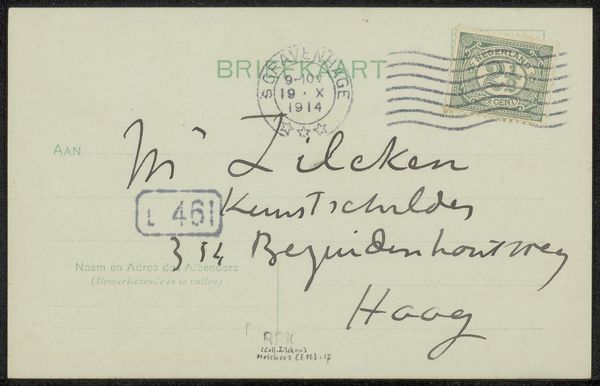 BRIEFKAART
'SGRAVENHAGE
9-10V
19 · X
1914
NEDERLAND
2½
CENT
AAN
Mr Zilcken
L 461
Kunstschilder
354 Bezuidenhoutweg
Haag
Naam en Adres des Afzenders
(Desverkiezende in te vullen)
RPK
(Coll. Zilcken)
Melchers (F.M.) - 17